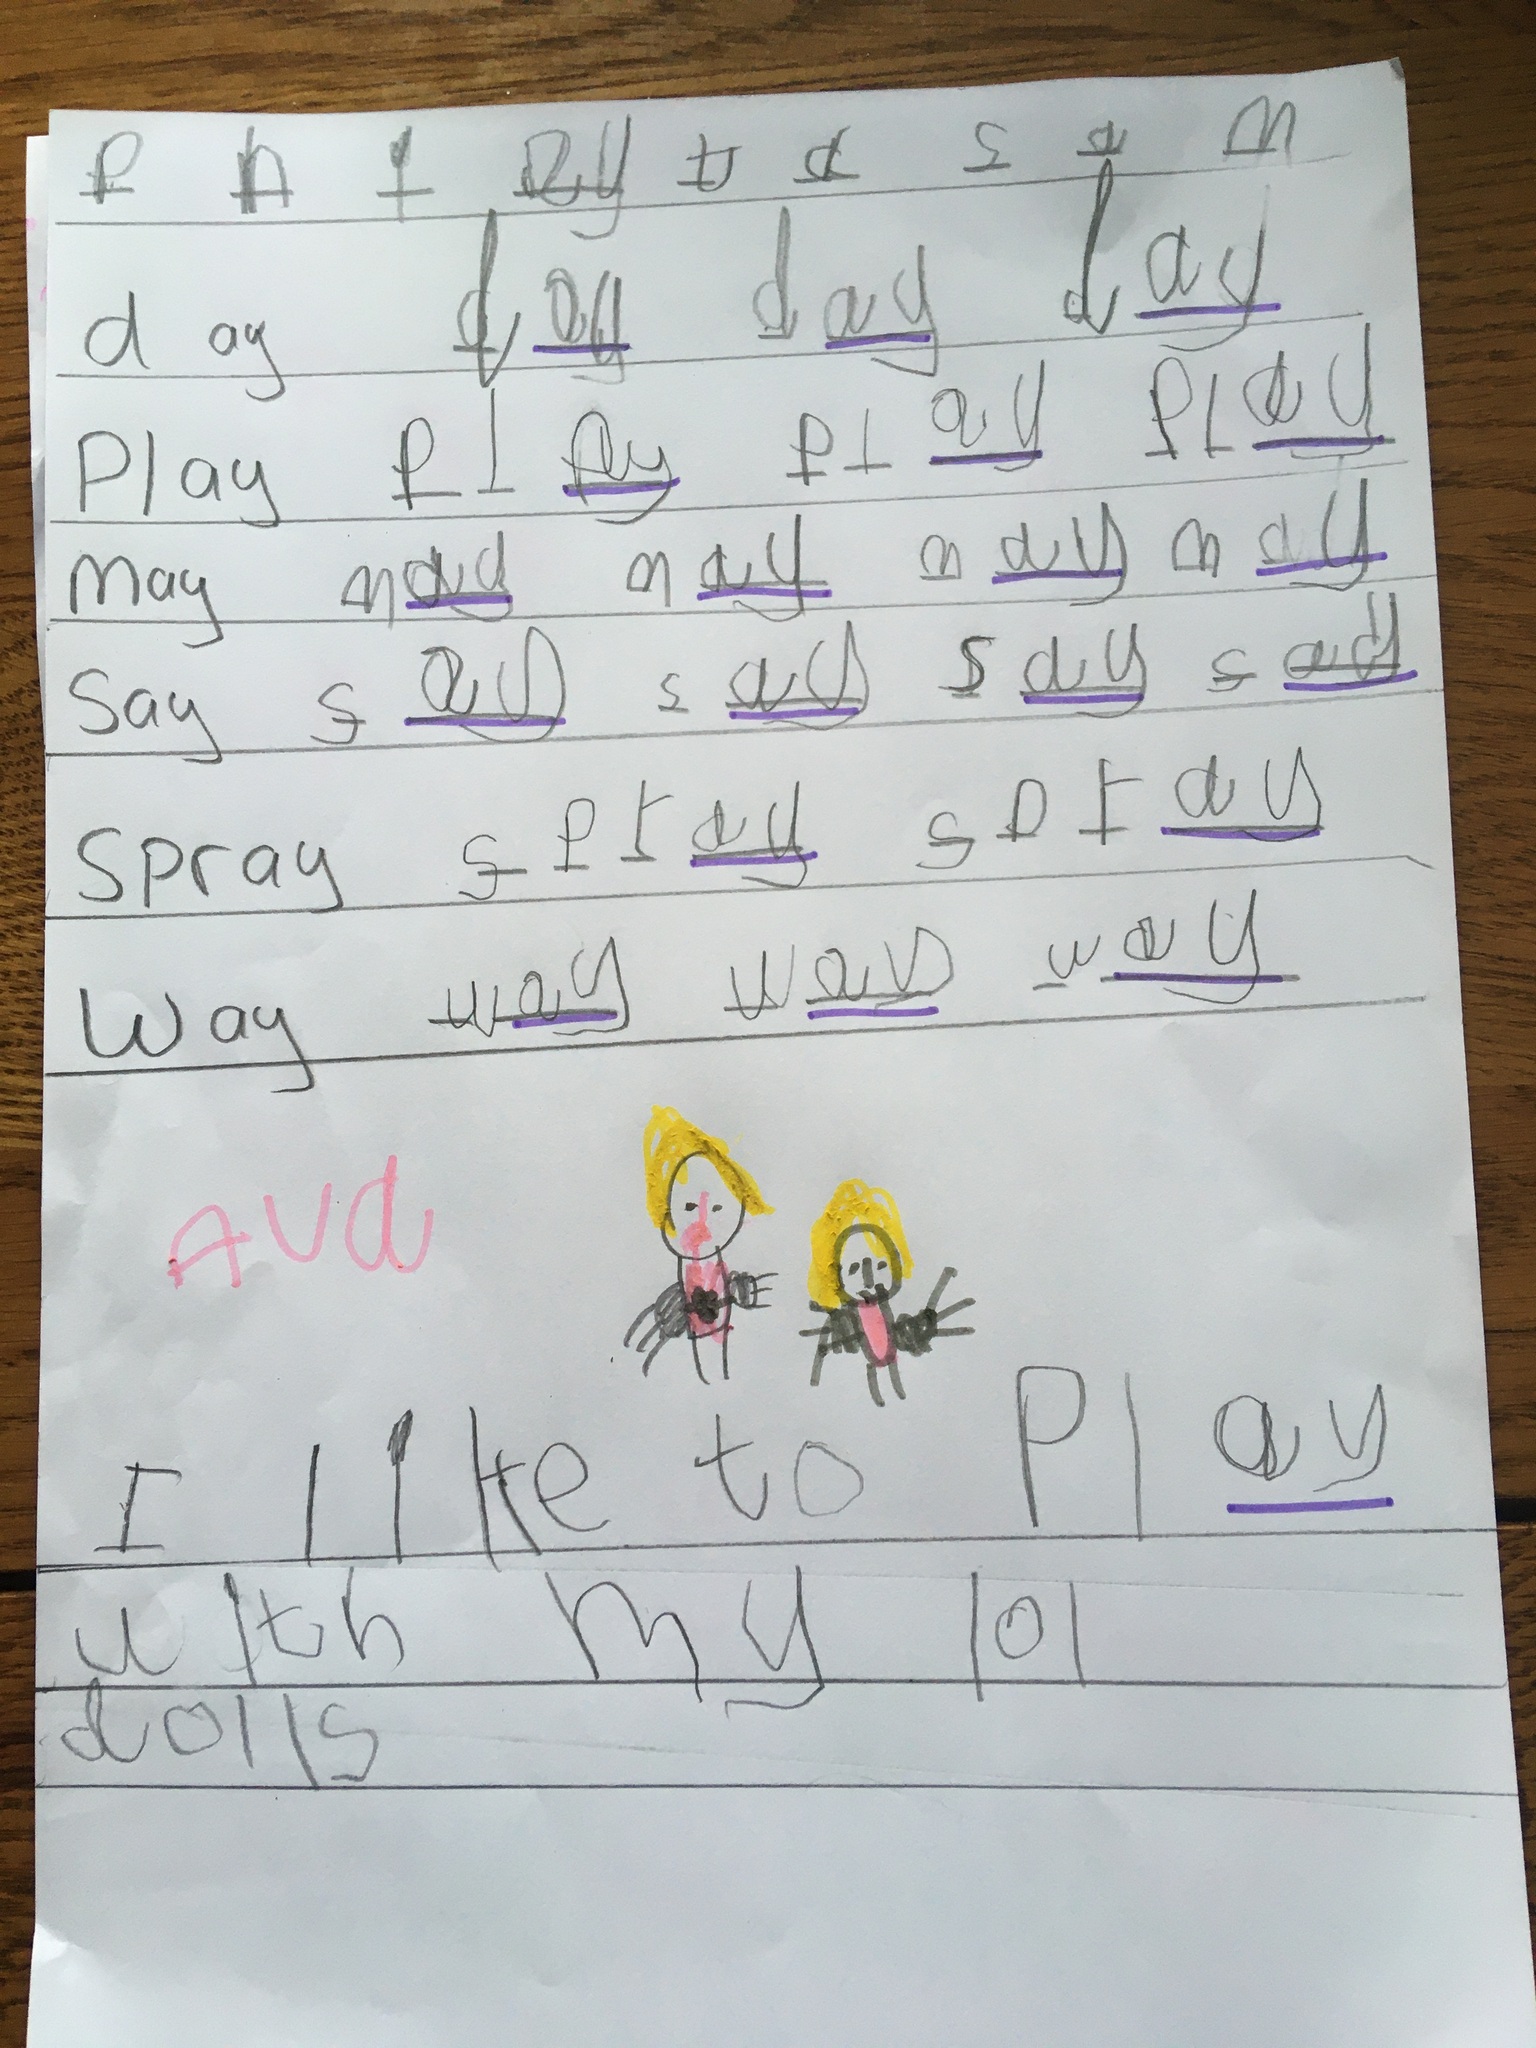 p h l ay t d s a m
day day day day
Play play play play
may nay nay nay nay
Say say say say say
Spray spray spray
Way way way way
Ava
I like to Play
with my lol
dolls